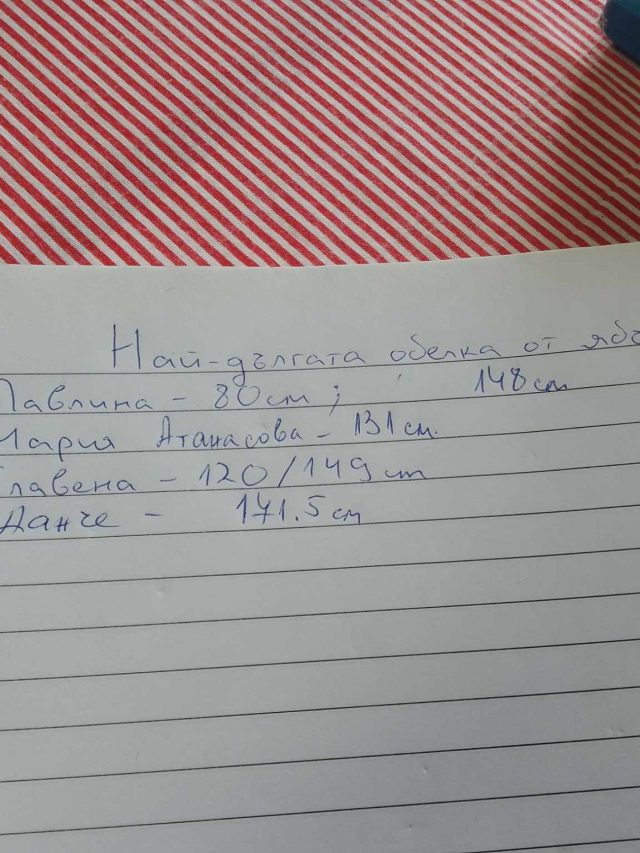 Най-дългата обелка от ябъ
Павлина - 80см; 148см
Мария Атанасова - 131см.
Славена - 120/149cm
Данче - 171.5см